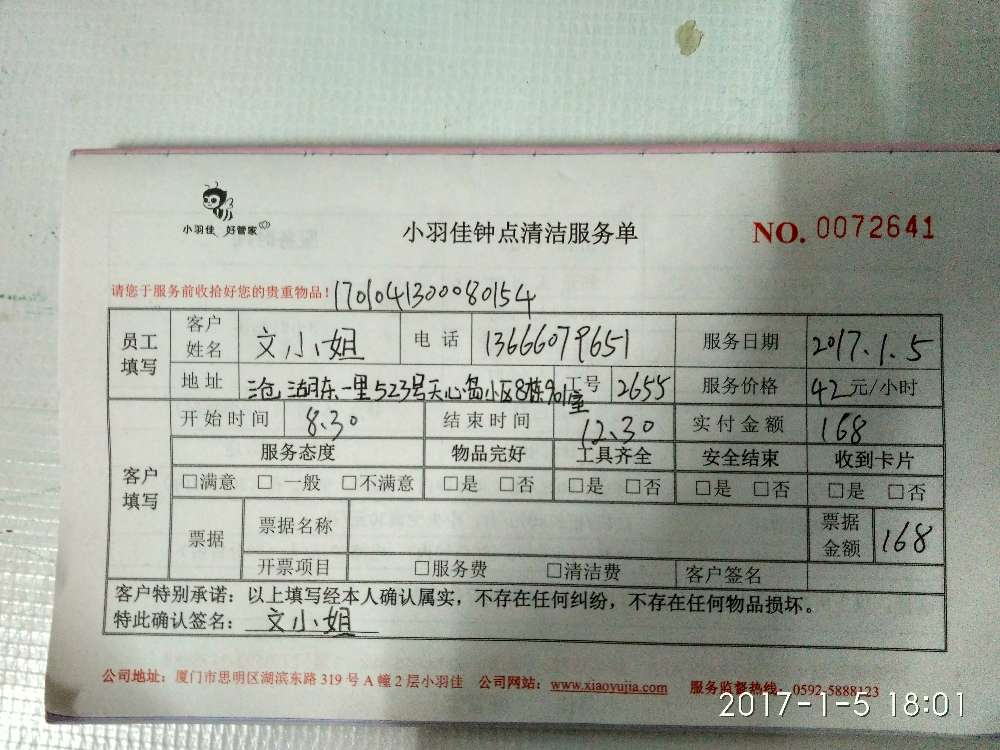 小羽佳 好管家
小羽佳钟点清洁服务单
NO. 0072641
请您于服务前收拾好您的贵重物品! 1701041300080154
员工填写 客户姓名 文小姐 电话 13666079651 服务日期 2017.1.5
地址 沧湖东一里523号天心岛小区8栋901座 工号 2655 服务价格 42元/小时
客户填写 开始时间 8.30 结束时间 12.30 实付金额 168
服务态度 物品完好 工具齐全 安全结束 收到卡片
□满意 □一般 □不满意 □是 □否 □是 □否 □是 □否 □是 □否
票据 票据名称 票据金额 168
开票项目 □服务费 □清洁费 客户签名
客户特别承诺：以上填写经本人确认属实，不存在任何纠纷，不存在任何物品损坏。
特此确认签名： 文小姐
公司地址：厦门市思明区湖滨东路319号A幢2层小羽佳 公司网站：www.xiaoyujia.com 服务监督热线：0592-5888123
2017-1-5 18:01